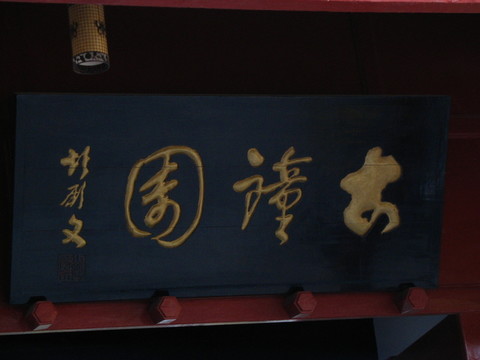 古鐘園
胡厥文